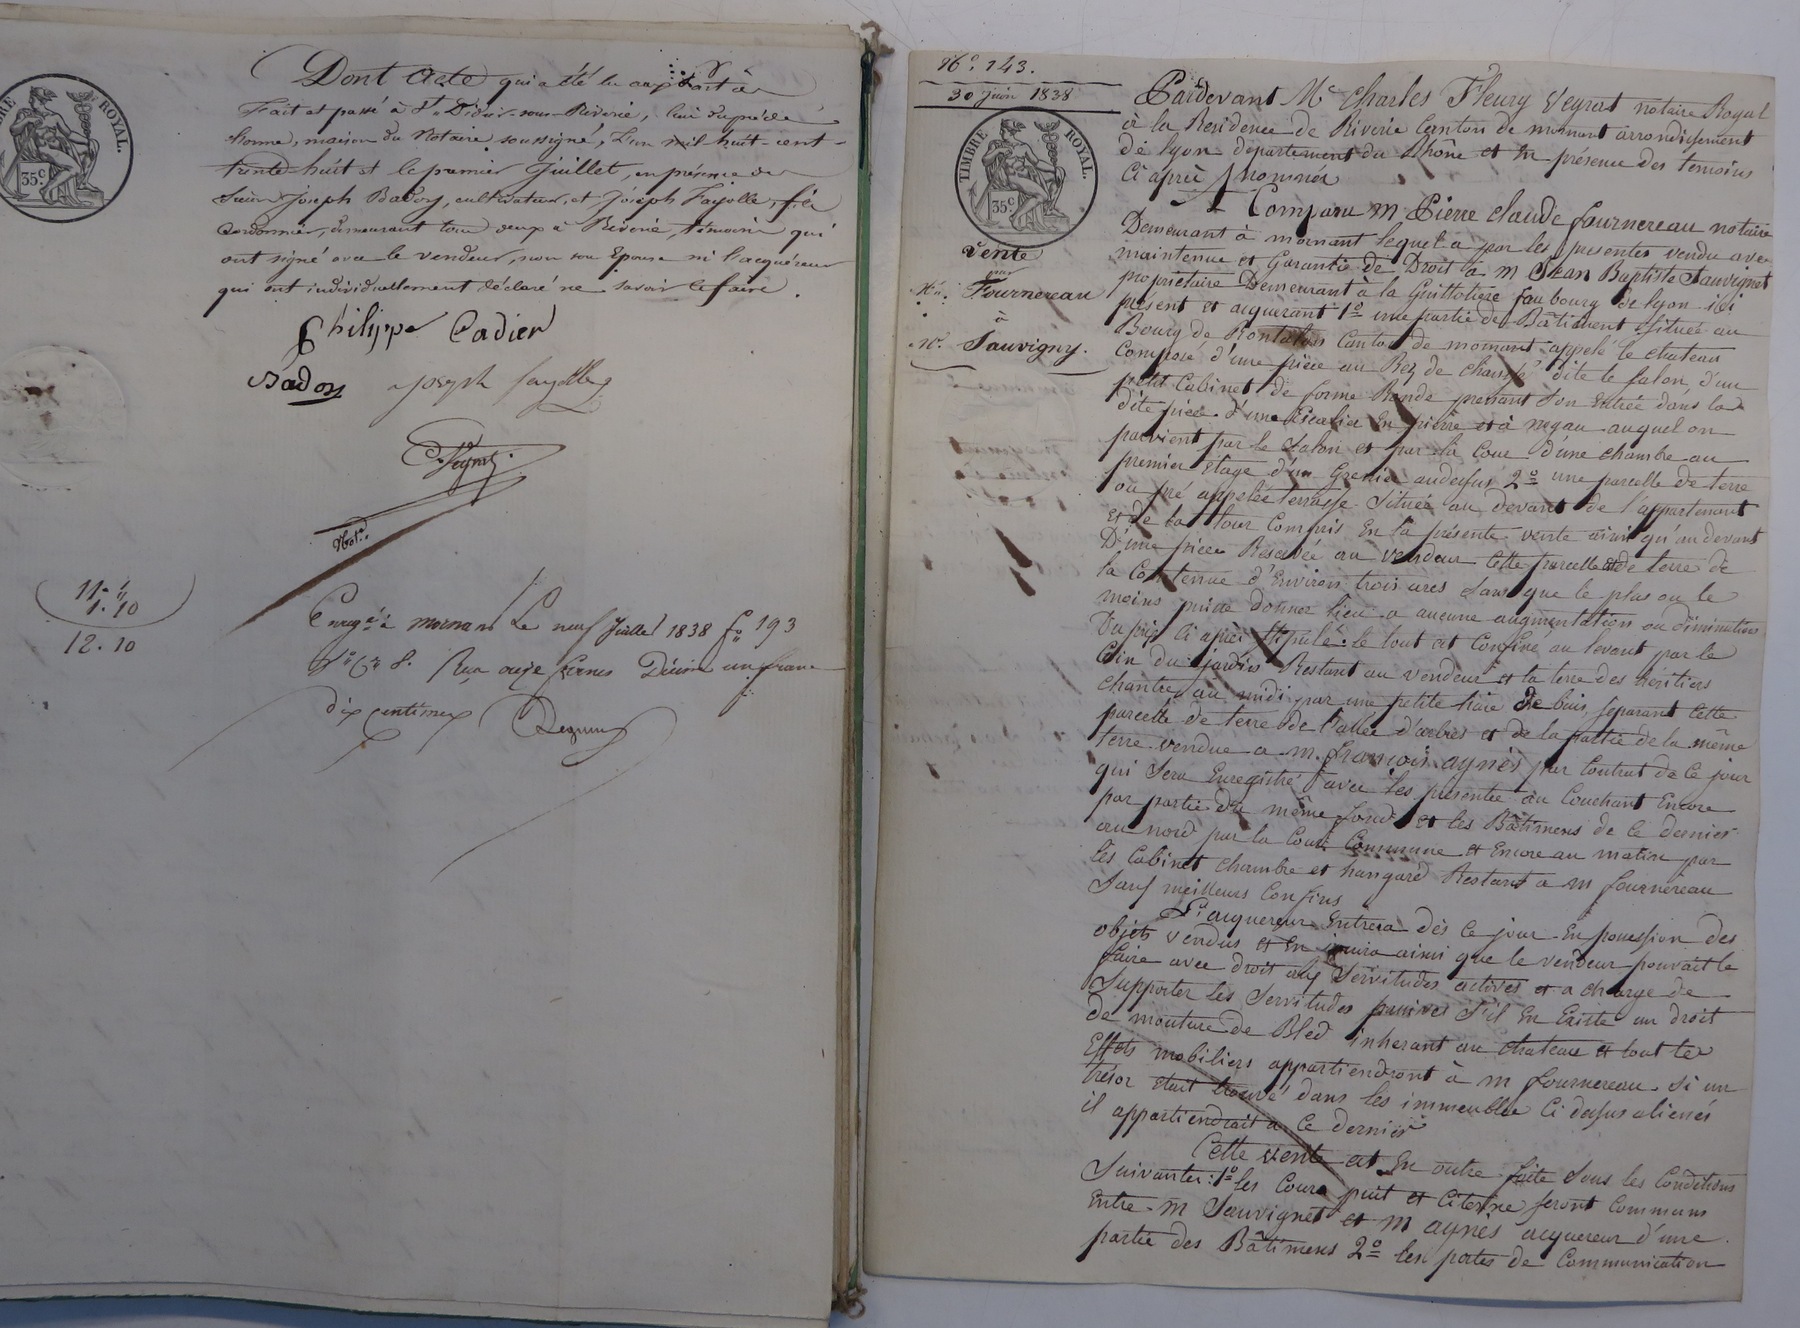 TIMBRE ROYAL.
35c
Dont Acte qui a été lu aux
Fait et passé à St. Didier-sous-Riverie, lieu du pré de
lhorme, maison du Notaire soussigné, L'an mil huit-cent-
trente-huit et le premier Juillet, en présence de
Sieurs Joseph Badoy, cultivateur, et Joseph Fayolle, fils
Cordonnier, demeurant tous deux à Riverie, témoins qui
ont signé avec le vendeur, non son Epouse ni l'acquéreur
qui ont individuellement déclaré ne savoir le faire.
Philippe Cadier
Badoy Joseph fayolle
C. Veyrat
Not.re
11. "
1. 10
12. 10
Enregé à mornant Le neuf Juillet 1838 fo 193
Vo Cse 8. Reçu onze francs Décime un franc
dix centimes
No. 143.
30 Juin 1838
TIMBRE ROYAL.
35c
Vente
par
Mr. Fournereau
à
Mr. Sauvigny.
Pardevant Me Charles Fleury Veyrat notaire Royal
à la Residence de Riverie Canton de mornant arrondissement
de lyon département du Rhône et En présence des temoins
Ci après nommés
Comparu M Pierre claude fournereau notaire
Demeurant à mornant lequel a par les presentes vendu avec
maintenue et Garantie de Droit à M Jean Baptiste Sauvignet
propriétaire Demeurant à la Guillotière faubourg de lyon ici
présent et acquerant 1o une partie de Bâtiment située au
Bourg de Rontalon Canton de mornant appelé le chateau
Composé d'une pièce au Rez de chaussé dite le salon, d'un
petit Cabinet de forme Ronde prenant son Entrée dans la
dite pièce d'une Escalier En pierre et à noyau auquel on
parvient par le salon et par la Cour d'une chambre au
premier Etage d'un Grenier audessus 2o une parcelle de terre
ou pré appelée terrasse Située au devant de l'appartement
Et de la tour Compris En la présente vente ainsi qu'au devant
D'une pièce Réservée au vendeur Cette parcelle de terre de
la Contenue d'Environ trois ares Sans que le plus ou le
moins puisse donner lieu à aucune augmentation ou diminution
Du prix Ci après Stipulé. le tout est Confiné au levant par le
Clin du jardin Restant au vendeur et la terre des heritiers
chantre au midi par une petite haie de buis séparant Cette
parcelle de terre de l'allée d'arbres et de la partie de la même
terre vendue a m. françois aynès par Contrat de Ce jour
qui Sera Enregistré avec les présentes au Couchant Encore
par partie du même fond et les Bâtimens de Ce dernier
au nord par la Cour Commune et Encore au matin par
les Cabinet chambre et hangard Restant a m fournereau
Sauf meilleurs Confins
L'acquereur Entrera dès Ce jour En possession des
objets vendus et En jouira ainsi que le vendeur pouvait le
faire avec droit aux Servitudes actives et a charge de
Supporter les Servitudes passives S'il En Existe un droit
de mouture de Bled inherant au chateau et tout les
Effets mobiliers appartiendront à m fournereau. Si un
trésor était trouvé dans les immeubles Ci dessus aliénés
il appartiendrait a Ce dernier
Cette vente est En outre faite Sous les Conditions
Suivantes: 1o les Cours puit et Citerne seront Communs
Entre m Sauvignet et m aynès acquereur d'une
partie des Bâtimens 2o les portes de Communication